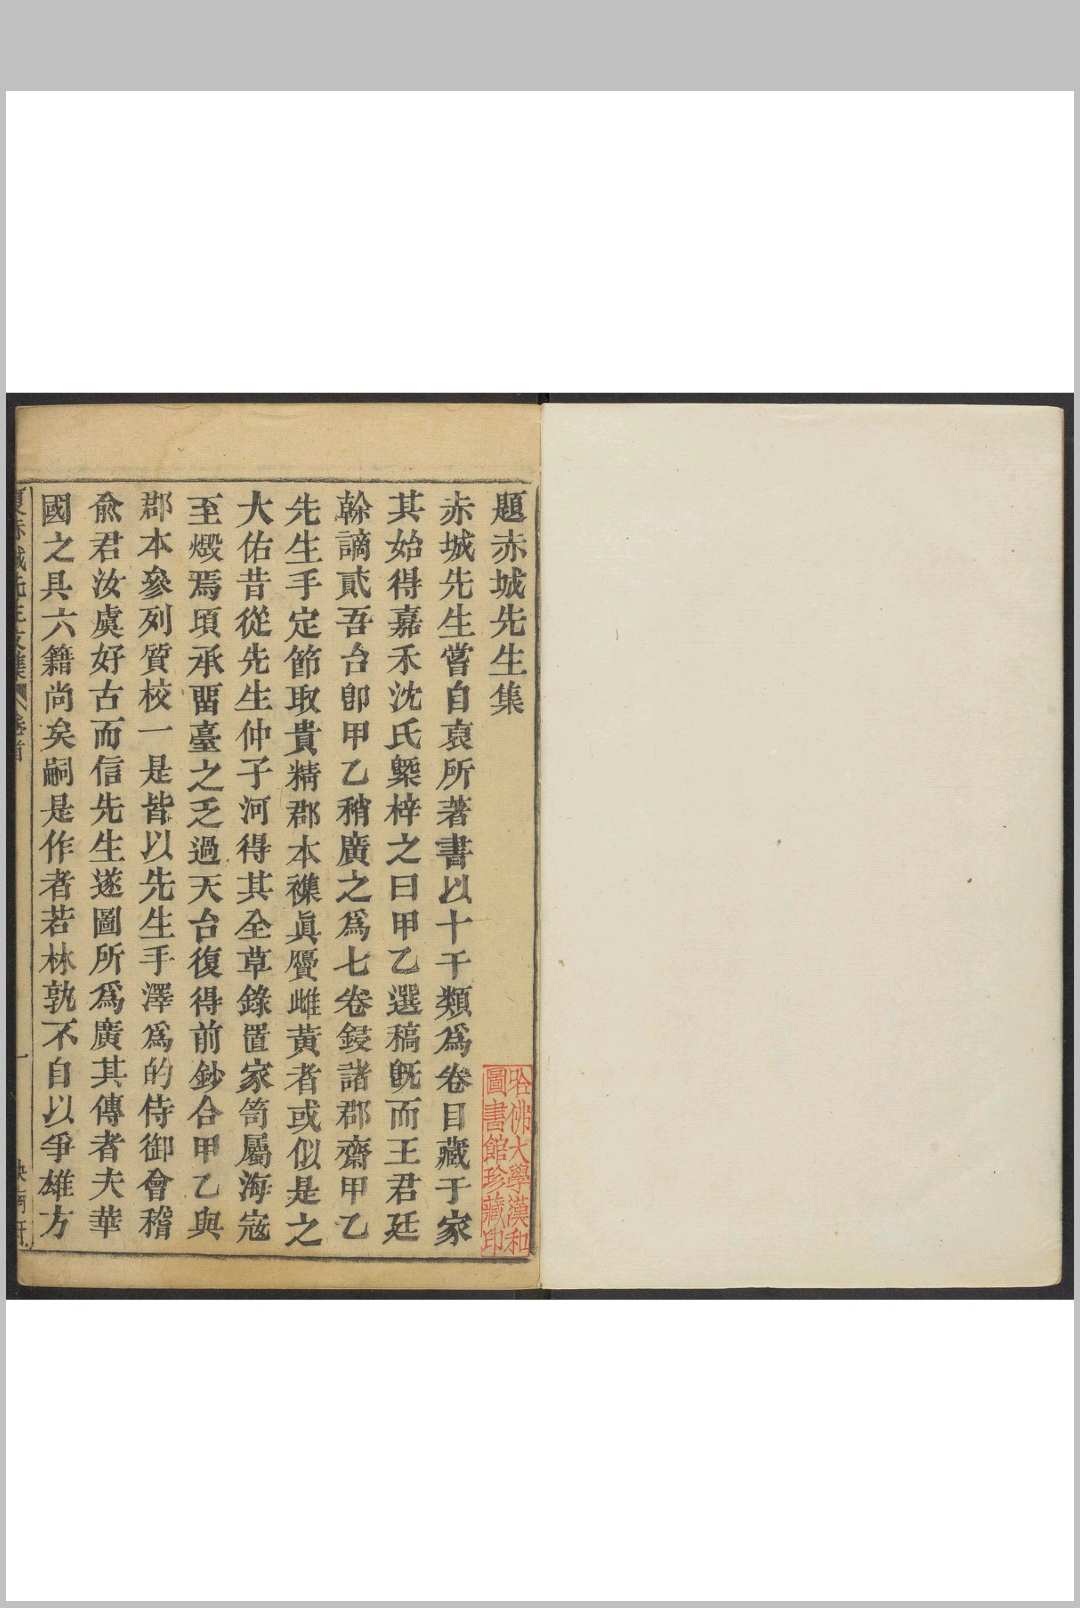 題赤城先生集
赤城先生嘗自裒所著書以十干類爲卷目藏于家
其始得嘉禾沈氏槩梓之曰甲乙選稿旣而王君廷
榦謫貳吾台卽甲乙稍廣之爲七卷鋟諸郡齋甲乙
先生手定節取貴精郡本襍眞贗雌黃者或似是之
大佑昔從先生仲子河得其全草錄置家笥屬海寇
至燬焉頃承畱臺之乏過天台復得前鈔合甲乙與
郡本參列質校一是皆以先生手澤爲的侍御會稽
兪君汝虞好古而信先生遂圖所爲廣其傳者夫華
國之具六籍尚矣嗣是作者若林孰不自以爭雄方
夏赤城先生文集 卷首 一 映南軒
哈佛大學漢和
圖書館珍藏印